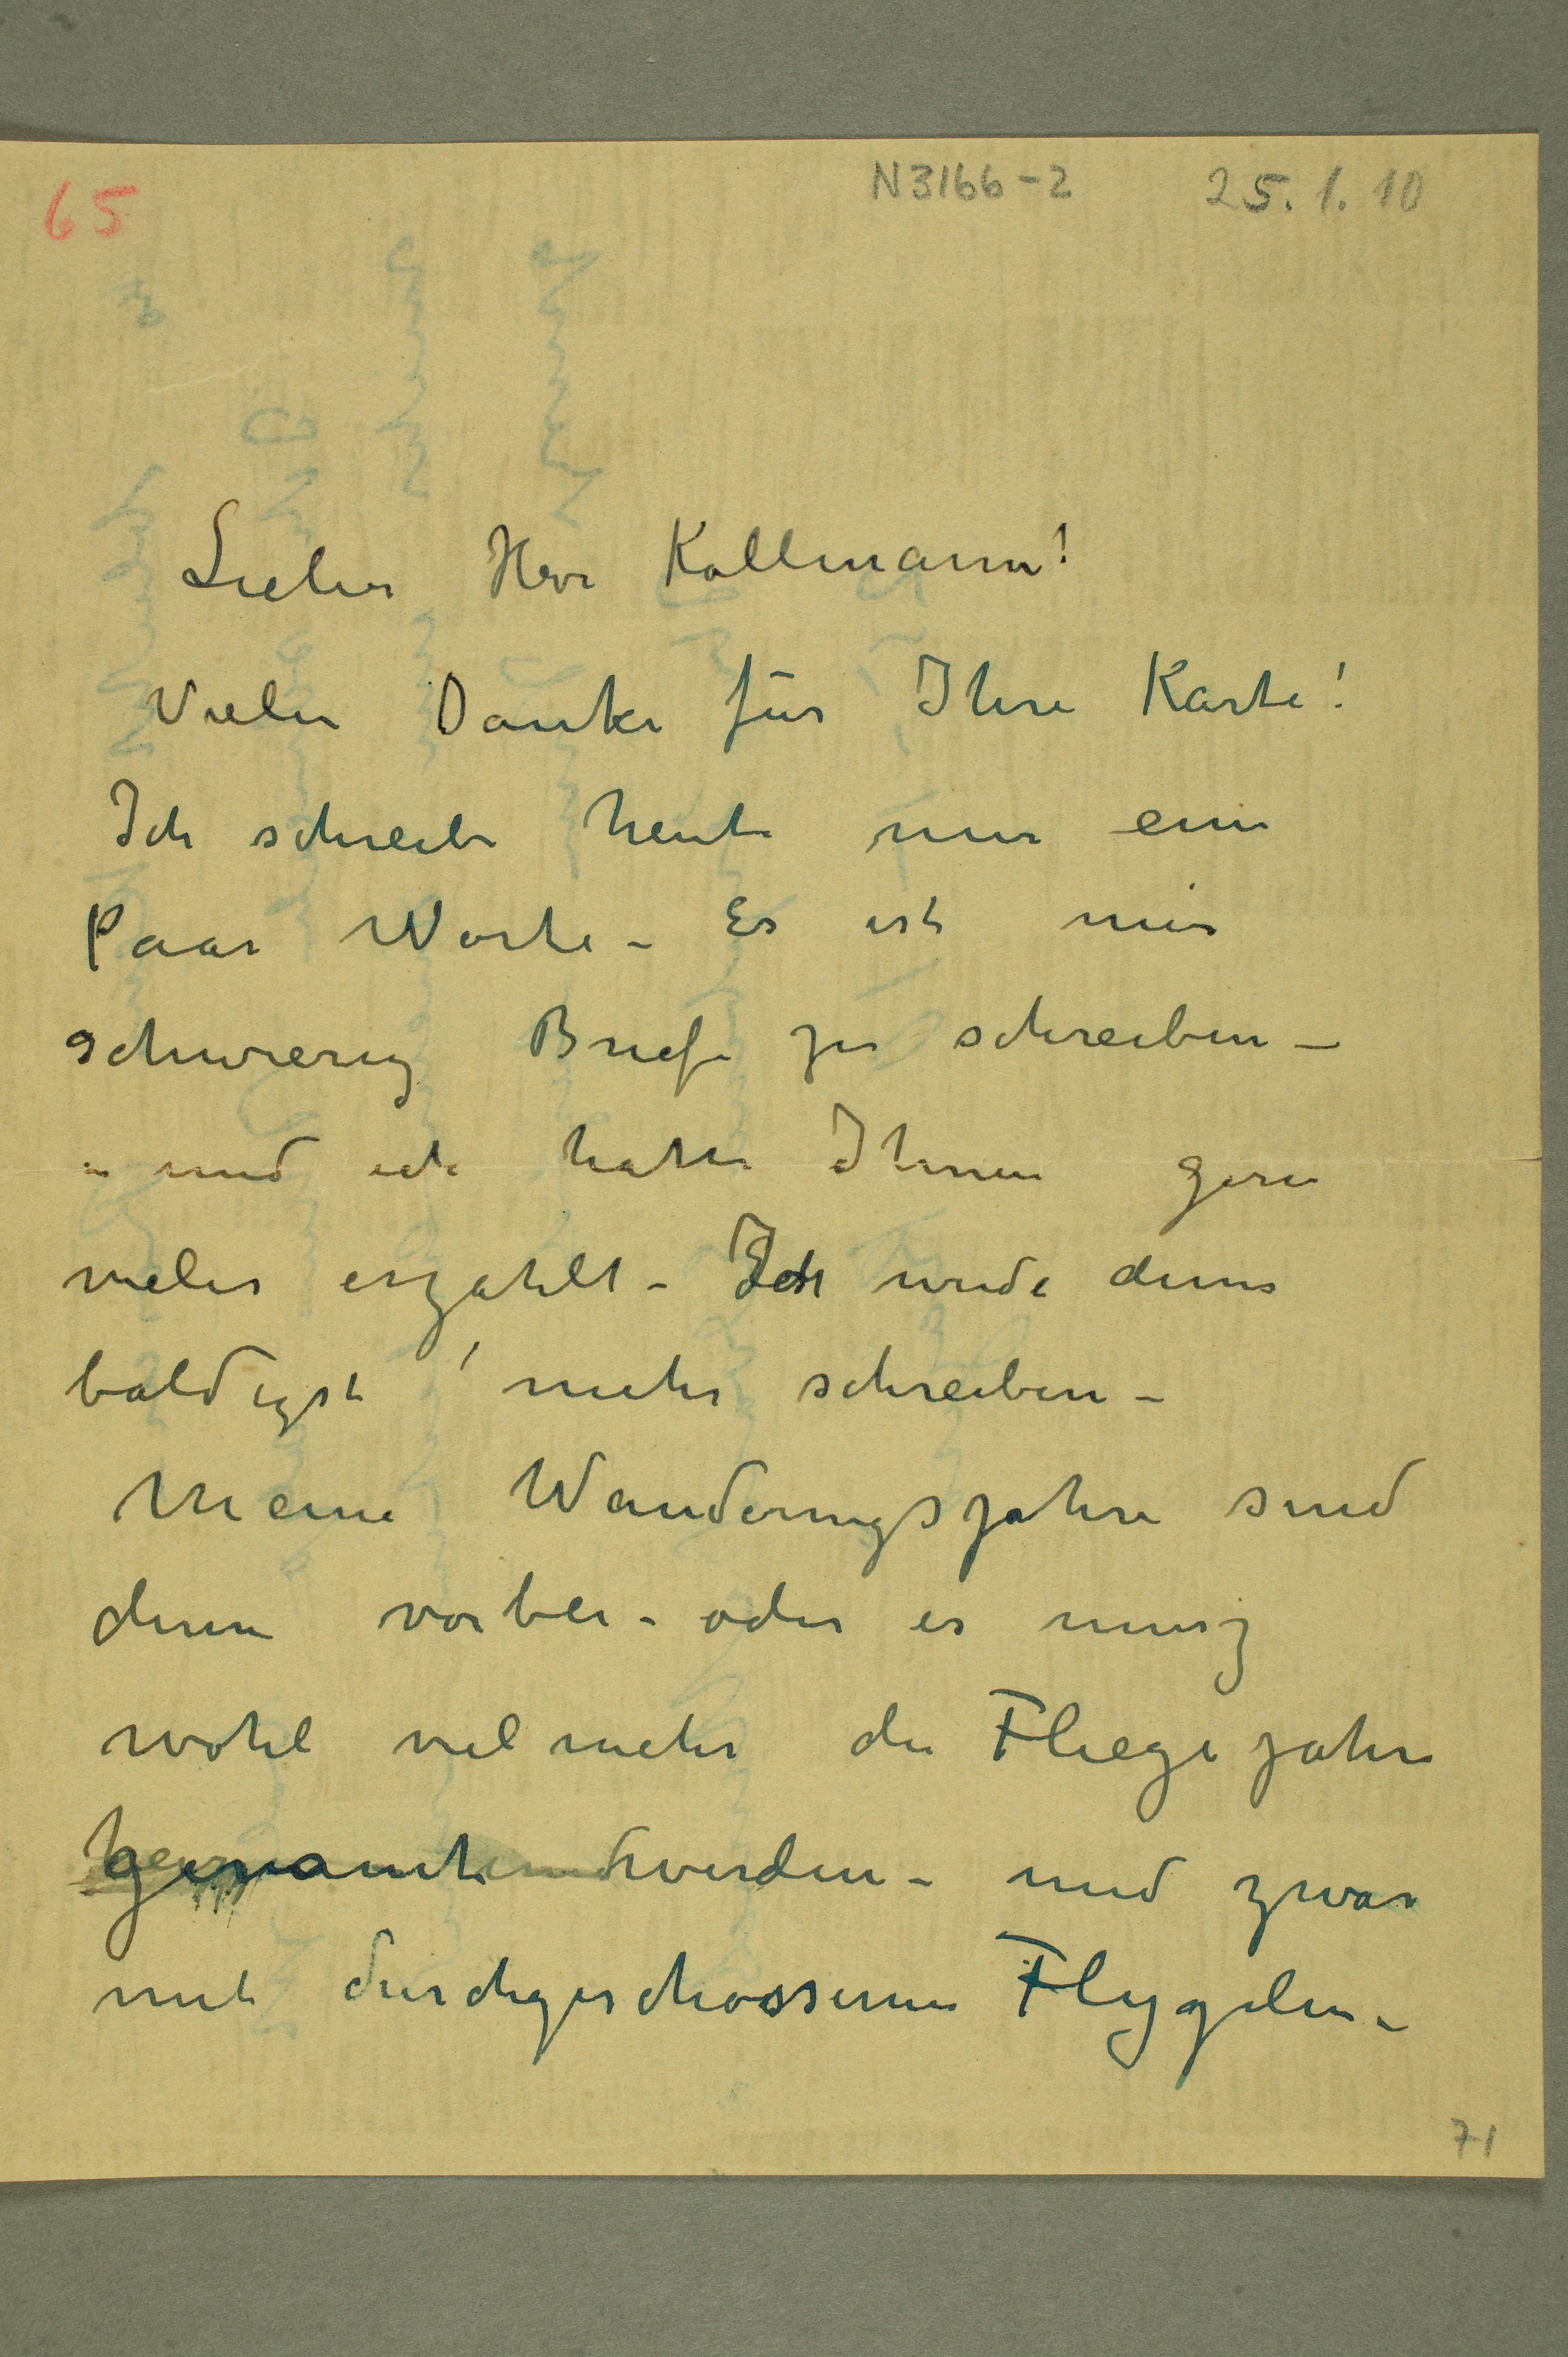 65 N3166-2 25.1.10
Lieber Herr Kollmann!
Vielen Danke für Ihre Karte!
Ich schreibe heute nur ein
Paar Worte – Es ist mir
schwierig Briefe zu schreiben –
– und ich hätte Ihnen gern
vieles erzählt – Ich werde denn
baldigst mehr schreiben –
Meine Wanderungsjahre sind
denn vorbei – oder es musz
wohl vielmehr die Fliegejahre
genannt werden – und zwar
mit durchgeschossenen Flygelen –
71